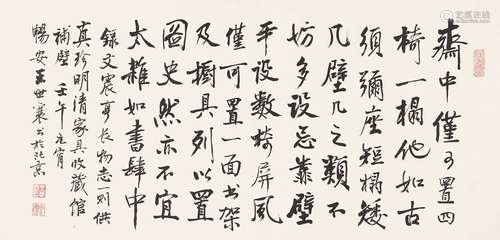 齋中僅可置四
椅一榻他如古
須彌座短榻矮
几壁几之類不
妨多設忌靠壁
平設數椅屏風
僅可置一面書架
及櫥具列以置
圖史然亦不宜
太雜如書肆中
錄文震亨長物志一則供
真珍明清家具收藏館
補壁 壬午元宵
暢安王世襄書於北京